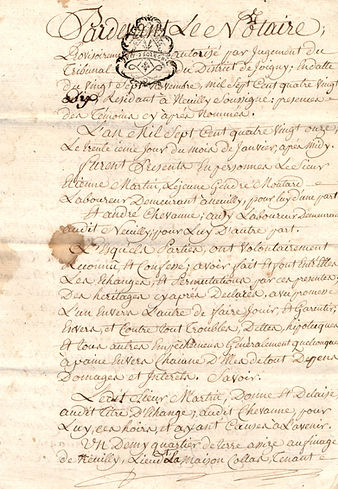 Pardevant Le Notaire,
Provisoirement autorisé par Jugement du
Tribunal du District de Joigny, En datte
du Vingt Sept Novembre, Mil Sept Cent quatre vingt
Résident à Neuilly Soussigné : presence
des Temoins cy après Nommés.
L'an Mil Sept Cent quatre Vingt onze,
Le trente ieme Jour du mois de Janvier, après midy
furent Presents En personnes Le Sieur
Etienne Martin, Le Jeune Gendre Moutard
Laboureur Demeurant à Neuilly, pour Luy d'une part
Et andré Chevanne, aussy Laboureur Demeurant
audit Neuilly, pour Luy D'autre part.
Lesquels Parties, ont Volontairement
Reconnu et Confessé, avoir fait Et font Entr'Elles
Les Echanges, Et Permutations par ces presentes;
Des heritages cy après Declarés, avec promesse
L'un Envers L'autre de faire Jouir, Et Garentir,
Envers, et Contre tout Troubles, Dettes, hipoteques
Et tous autres Empêchemens Generalement quelconques
a paine Envers Chacune D'Elles de tout Depens
Domages et Interets. Savoir.
Ledit Sieur Martin, Donne Et Delaisse
audit Titre D'Echange, audit Chevanne, pour
Luy, ses hoirs, et ayant Causes à L'avenir.
Un Demy quartier de terre assize au finage
de Neuilly, Lieudit La Maison Collas, Tenant